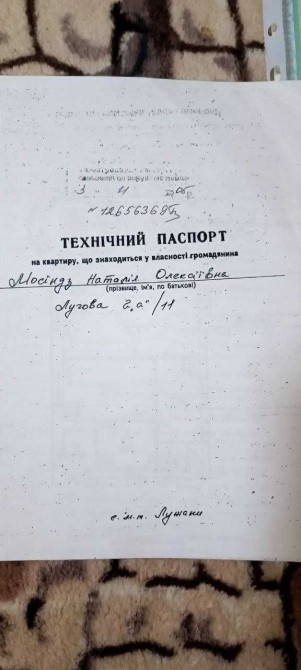 3 11 06
№ 12656368
ТЕХНІЧНИЙ ПАСПОРТ
на квартиру, що знаходиться у власності громадянина
Мосіндз Наталія Олексіївна
(прізвище, ім'я, по батькові)
Лугова 2 „а" / 11
с.м.т. Лужани